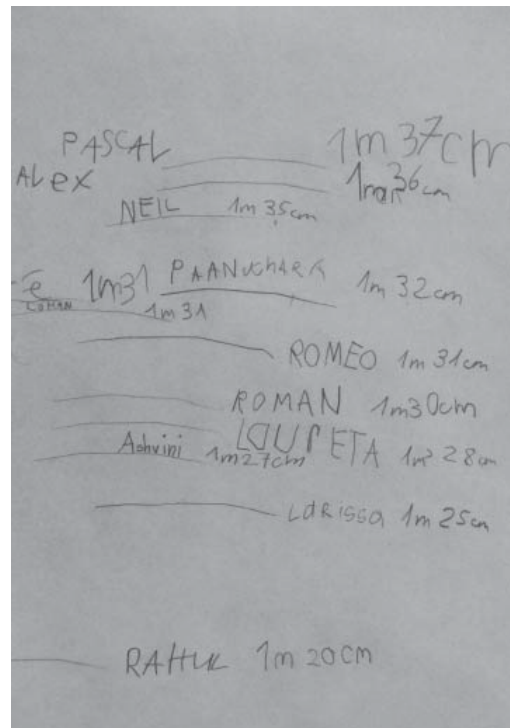 PASCAL 1m 37cm
ALex 36cm
NEIL 1m 35cm
1m31 PAANUCHARA 1m 32cm
1m31
ROMEO 1m 31cm
ROMAN 1m30cm
LOUPETA 1m 28cm
Ashvini 1m27cm
LaRissa 1m 25cm
RAHUL 1m 20cm